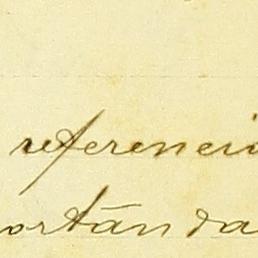 referenci
ortanda